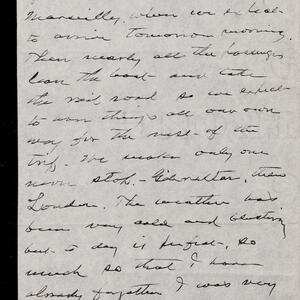 Marseilles, when we expect
to arrive tomorrow morning.
Then nearly all the passengers
leave the boat and take
the rail road so we expect
to own things all our own
way for the rest of the
trip. We make only one
more stop,- Gibraltar, then
London. The weather has
been very cold and blustery
but to day is perfect, so
much so that I have
already forgotten I was very